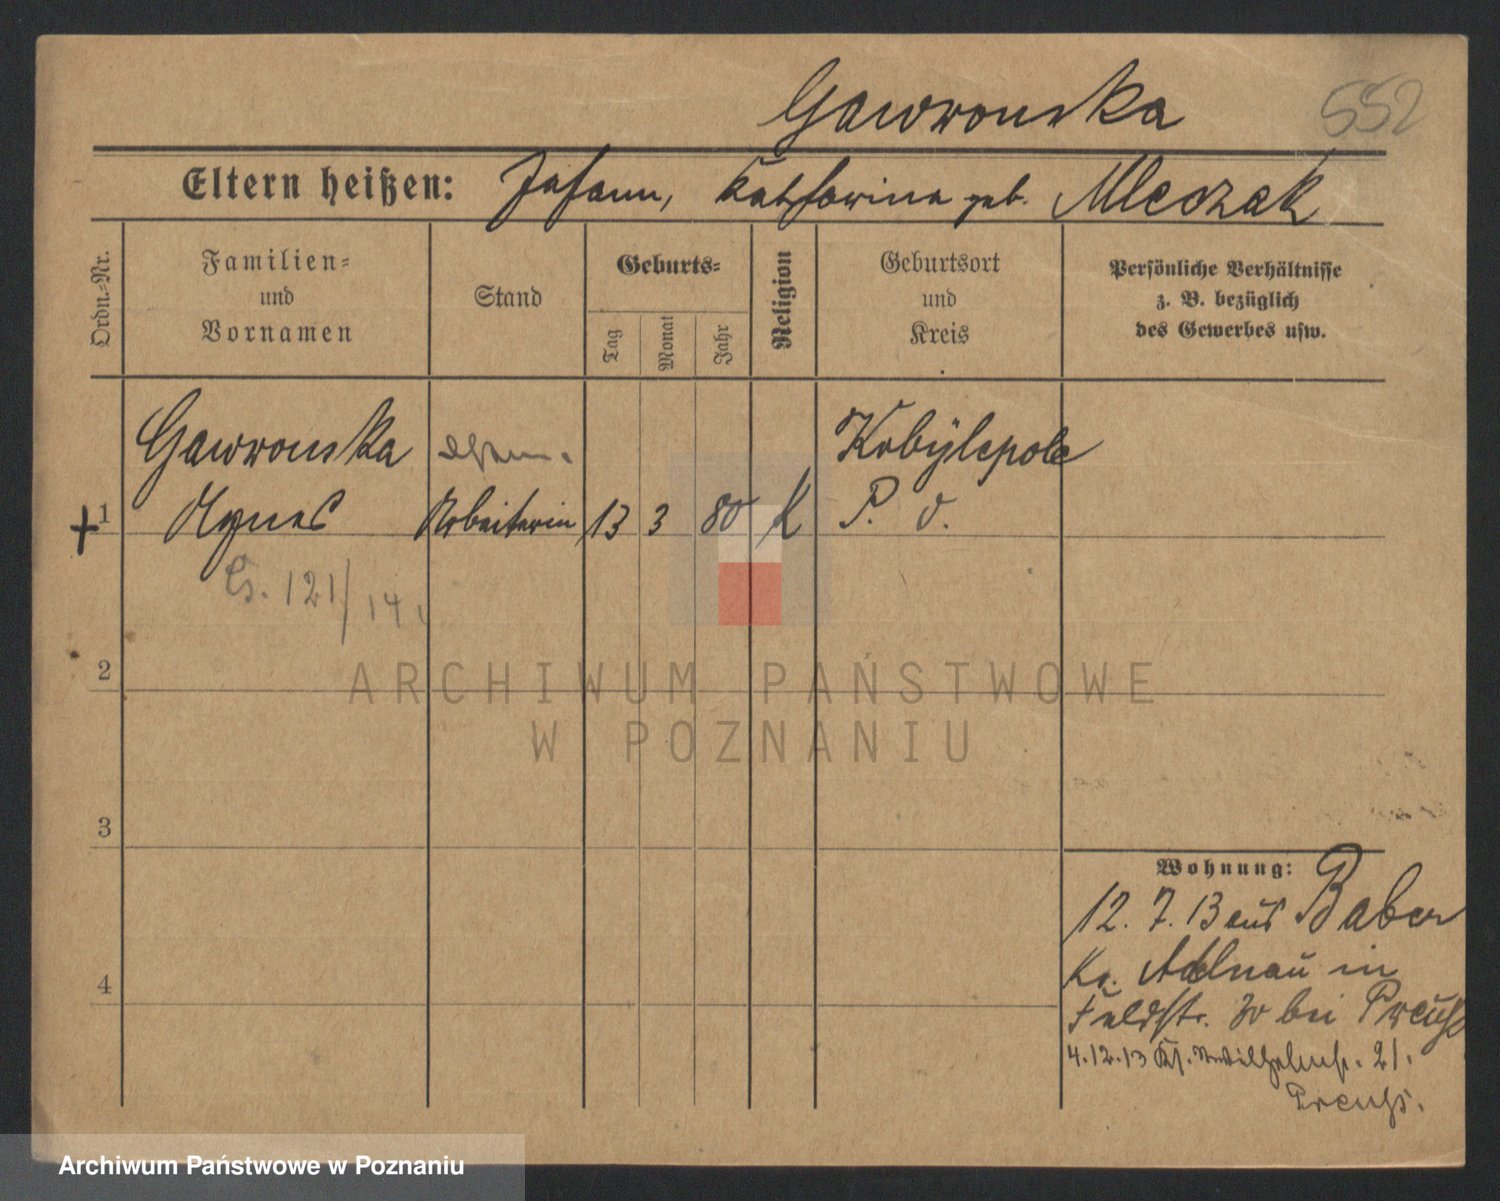 Gawronska
552
Eltern heißen: Johann, Katharina geb. Mleczak
Ordn.-Nr.
Familien-
und
Vornamen
Stand
Geburts-
Tag
Monat
Jahr
Religion
Geburtsort
und
Kreis
Persönliche Verhältnisse
z. B. bezüglich
des Gewerbes usw.
Gawronska
Kobylepole
+ 1 Agnes Arbeiterin 13 3 80 K P. O.
121/14.
2
ARCHIWUM PAŃSTWOWE
W POZNANIU
3
Wohnung:
12. 7. 13 aus Babor
4
Kr. Adelnau in
Feldstr. 30 bei Preuß
4.12.13 21.
Preuß.
Archiwum Państwowe w Poznaniu